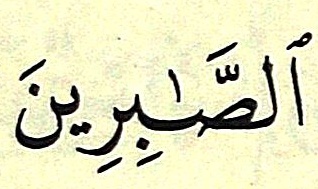 ٱلصَّـٰبِرِينَ